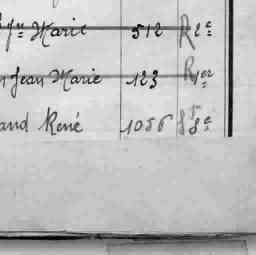 Jn Marie 512 R 2e
n Jean Marie 123 R 1er
and René 1056